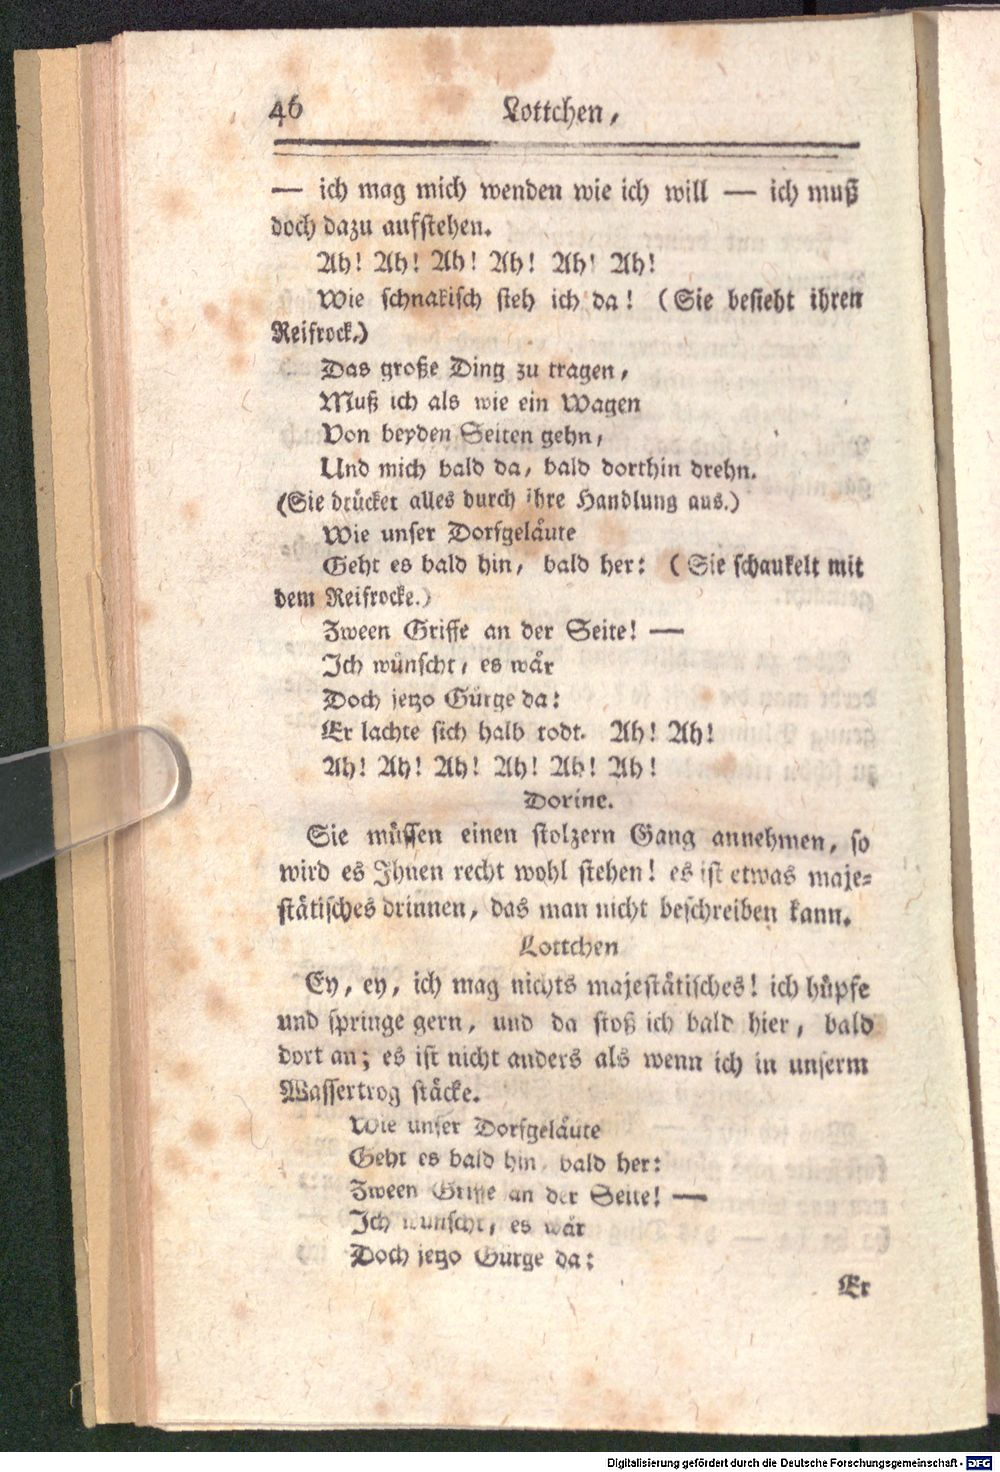 46 Lottchen,
— ich mag mich wenden wie ich will — ich muß
doch dazu aufstehen.
Ah! Ah! Ah! Ah! Ah! Ah!
Wie schnakisch steh ich da! (Sie besieht ihren
Reifrock.)
Das große Ding zu tragen,
Muß ich als wie ein Wagen
Von beyden Seiten gehn,
Und mich bald da, bald dorthin drehn.
(Sie drücket alles durch ihre Handlung aus.)
Wie unser Dorfgeläute
Geht es bald hin, bald her: (Sie schaukelt mit
dem Reifrocke.)
Zween Griffe an der Seite! —
Ich wünscht, es wär
Doch jetzo Gürge da:
Er lachte sich halb todt. Ah! Ah!
Ah! Ah! Ah! Ah! Ah! Ah!
Dorine.
Sie müssen einen stolzern Gang annehmen, so
wird es Ihnen recht wohl stehen! es ist etwas maje-
stätisches drinnen, das man nicht beschreiben kann.
Lottchen
Ey, ey, ich mag nichts majestätisches! ich hüpfe
und springe gern, und da stoß ich bald hier, bald
dort an; es ist nicht anders als wenn ich in unserm
Wassertrog stäcke.
Wie unser Dorfgeläute
Geht es bald hin, bald her:
Zween Griffe an der Seite! —
Ich wünscht, es wär
Doch jetzo Gürge da:
Er
Digitalisierung gefördert durch die Deutsche Forschungsgemeinschaft - DFG